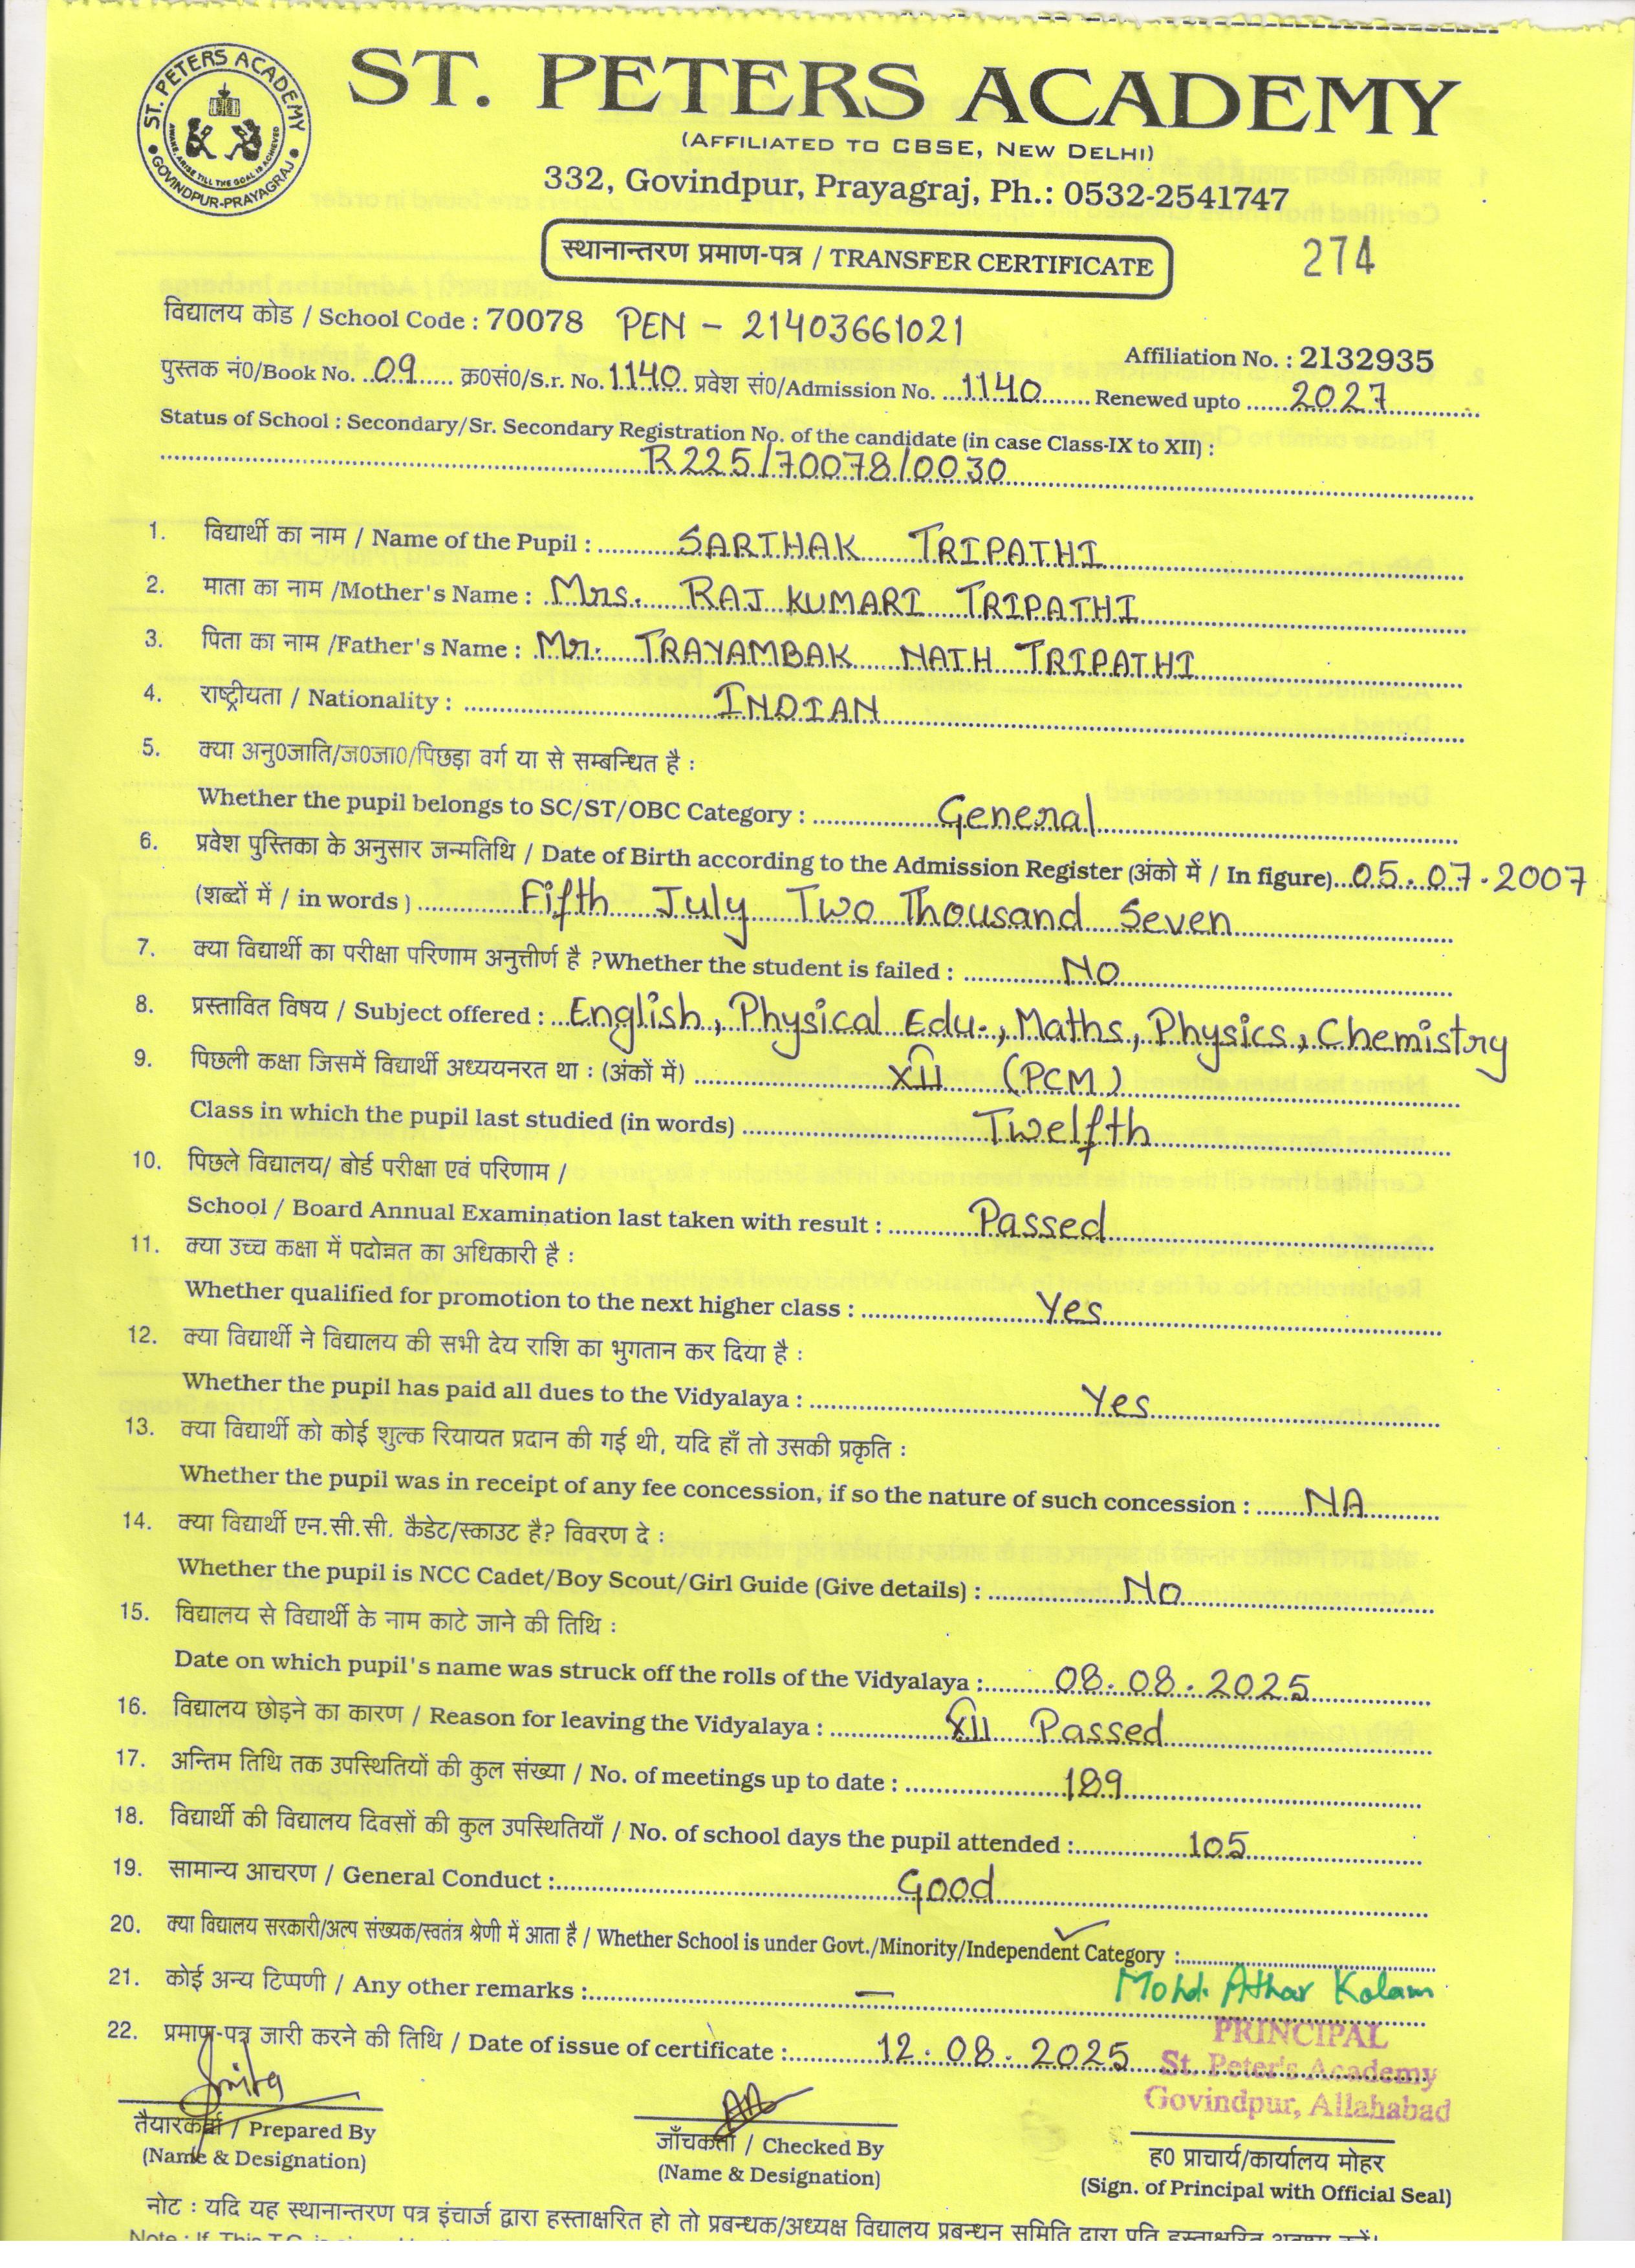 ST. PETERS ACADEMY
GOVINDPUR-PRAYAGRAJ
AWAKE, ARISE TILL THE GOAL IS ACHIEVED
ST. PETERS ACADEMY
(AFFILIATED TO CBSE, NEW DELHI)
332, Govindpur, Prayagraj, Ph.: 0532-2541747
स्थानान्तरण प्रमाण-पत्र / TRANSFER CERTIFICATE
274
विद्यालय कोड / School Code : 70078 PEN - 21403661021
Affiliation No. : 2132935
पुस्तक नं0/Book No. 09 क्र0सं0/S.r. No. 1140 प्रवेश सं0/Admission No. 1140 Renewed upto 2027
Status of School : Secondary/Sr. Secondary Registration No. of the candidate (in case Class-IX to XII) :
R225/70078/0030
1. विद्यार्थी का नाम / Name of the Pupil : SARTHAK TRIPATHI
2. माता का नाम /Mother's Name : Mrs. RAJ KUMARI TRIPATHI
3. पिता का नाम /Father's Name : Mr. TRAYAMBAK NATH TRIPATHI
4. राष्ट्रीयता / Nationality : INDIAN
5. क्या अनु0जाति/ज0जा0/पिछड़ा वर्ग या से सम्बन्धित है :
Whether the pupil belongs to SC/ST/OBC Category : General
6. प्रवेश पुस्तिका के अनुसार जन्मतिथि / Date of Birth according to the Admission Register (अंको में / In figure) 05.07.2007
(शब्दों में / in words ) Fifth July Two Thousand Seven
7. क्या विद्यार्थी का परीक्षा परिणाम अनुत्तीर्ण है ?Whether the student is failed : NO
8. प्रस्तावित विषय / Subject offered : English, Physical Edu., Maths, Physics, Chemistry
9. पिछली कक्षा जिसमें विद्यार्थी अध्ययनरत था : (अंकों में) XII (PCM)
Class in which the pupil last studied (in words) Twelfth
10. पिछले विद्यालय/ बोर्ड परीक्षा एवं परिणाम /
School / Board Annual Examination last taken with result : Passed
11. क्या उच्च कक्षा में पदोन्नत का अधिकारी है :
Whether qualified for promotion to the next higher class : Yes
12. क्या विद्यार्थी ने विद्यालय की सभी देय राशि का भुगतान कर दिया है :
Whether the pupil has paid all dues to the Vidyalaya : Yes
13. क्या विद्यार्थी को कोई शुल्क रियायत प्रदान की गई थी, यदि हाँ तो उसकी प्रकृति :
Whether the pupil was in receipt of any fee concession, if so the nature of such concession : NA
14. क्या विद्यार्थी एन.सी.सी. कैडेट/स्काउट है? विवरण दे :
Whether the pupil is NCC Cadet/Boy Scout/Girl Guide (Give details) : No
15. विद्यालय से विद्यार्थी के नाम काटे जाने की तिथि :
Date on which pupil's name was struck off the rolls of the Vidyalaya : 08.08.2025
16. विद्यालय छोड़ने का कारण / Reason for leaving the Vidyalaya : XII Passed
17. अन्तिम तिथि तक उपस्थितियों की कुल संख्या / No. of meetings up to date : 189
18. विद्यार्थी की विद्यालय दिवसों की कुल उपस्थितियाँ / No. of school days the pupil attended : 105
19. सामान्य आचरण / General Conduct : Good
20. क्या विद्यालय सरकारी/अल्प संख्यक/स्वतंत्र श्रेणी में आता है / Whether School is under Govt./Minority/Independent Category :
21. कोई अन्य टिप्पणी / Any other remarks : — Mohd. Athar Kalam
22. प्रमाण-पत्र जारी करने की तिथि / Date of issue of certificate : 12.08.2025
PRINCIPAL
St. Peter's Academy
Govindpur, Allahabad
तैयारकर्ता / Prepared By
(Name & Designation)
जाँचकर्ता / Checked By
(Name & Designation)
ह0 प्राचार्य/कार्यालय मोहर
(Sign. of Principal with Official Seal)
नोट : यदि यह स्थानान्तरण पत्र इंचार्ज द्वारा हस्ताक्षरित हो तो प्रबन्धक/अध्यक्ष विद्यालय प्रबन्धन समिति द्वारा प्रति हस्ताक्षरित